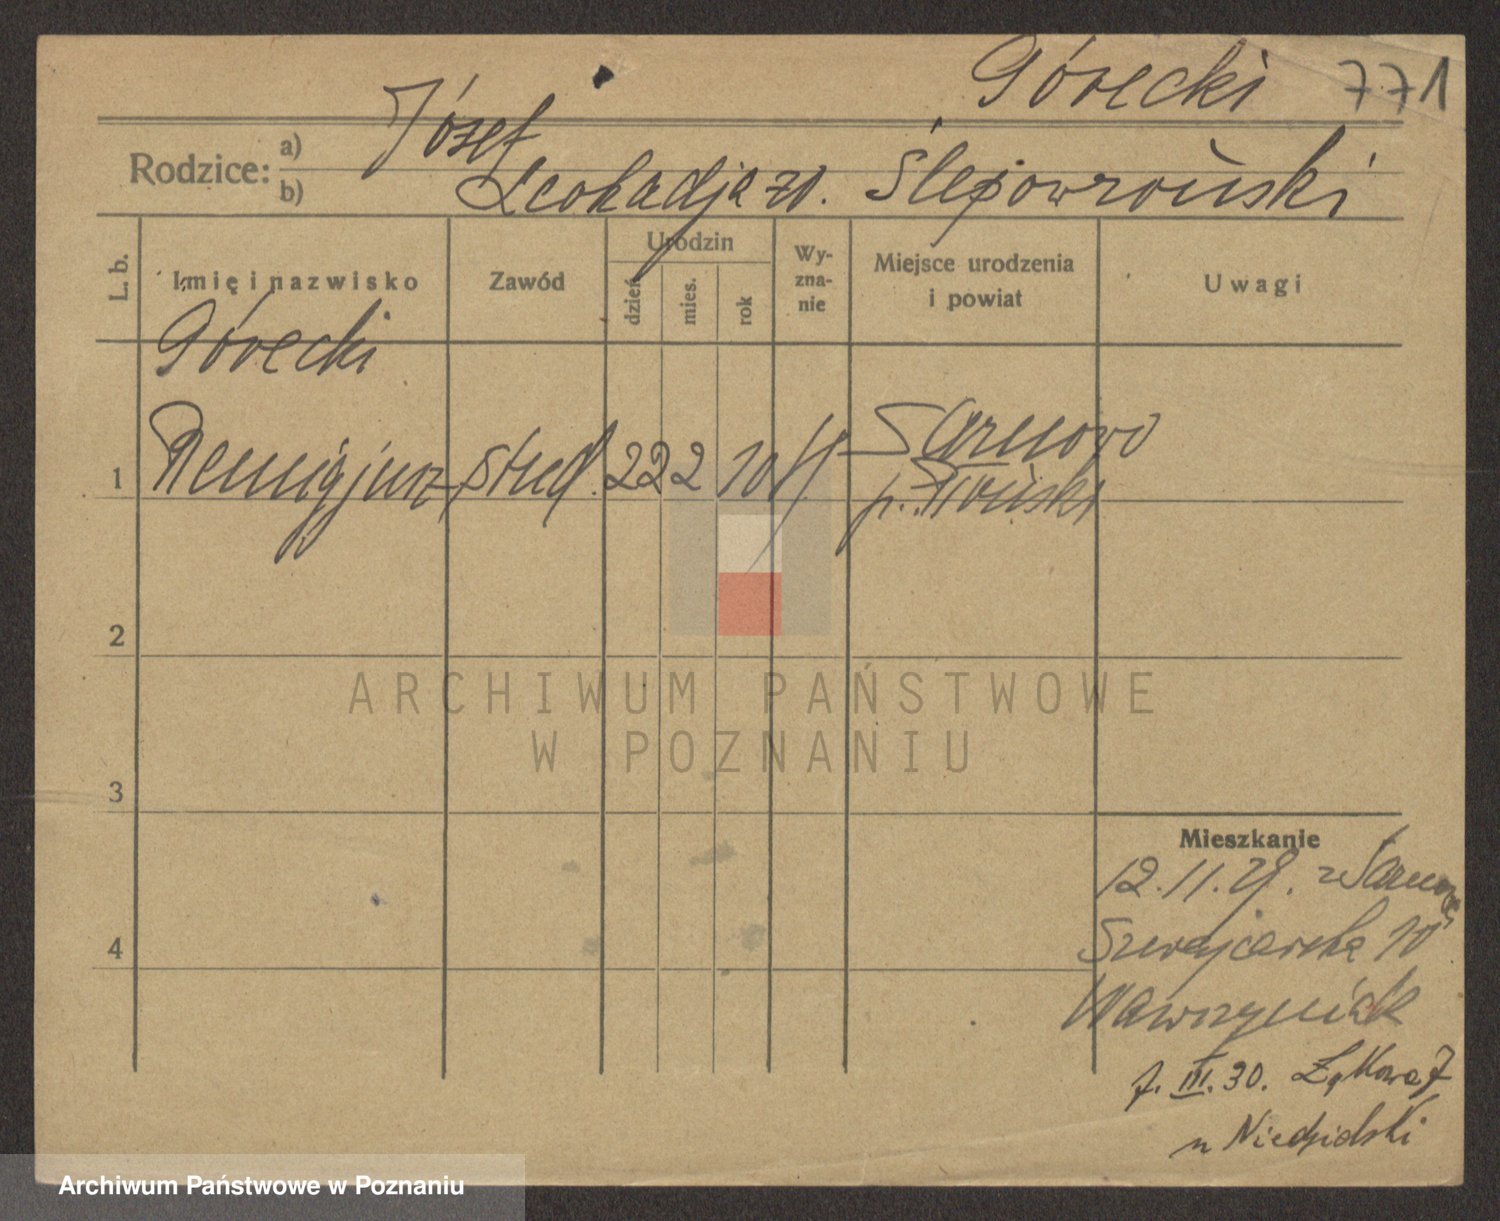 Górecki 771
Rodzice: a) Józef
b) Leokadja zd. Ślepowrońska
L. b. Imię i nazwisko Zawód Urodzin dzień mies. rok Wyznanie Miejsce urodzenia i powiat Uwagi
Górecki
1 Remigjusz stud. 22 2 10 Sarnowo
p. Płoński
2
ARCHIWUM PAŃSTWOWE
W POZNANIU
3
Mieszkanie
12.11.29. z
4 Szwajcarska 10
Wawrzyniak
7. III. 30. Łąkowa 7
u Niedzielski
Archiwum Państwowe w Poznaniu